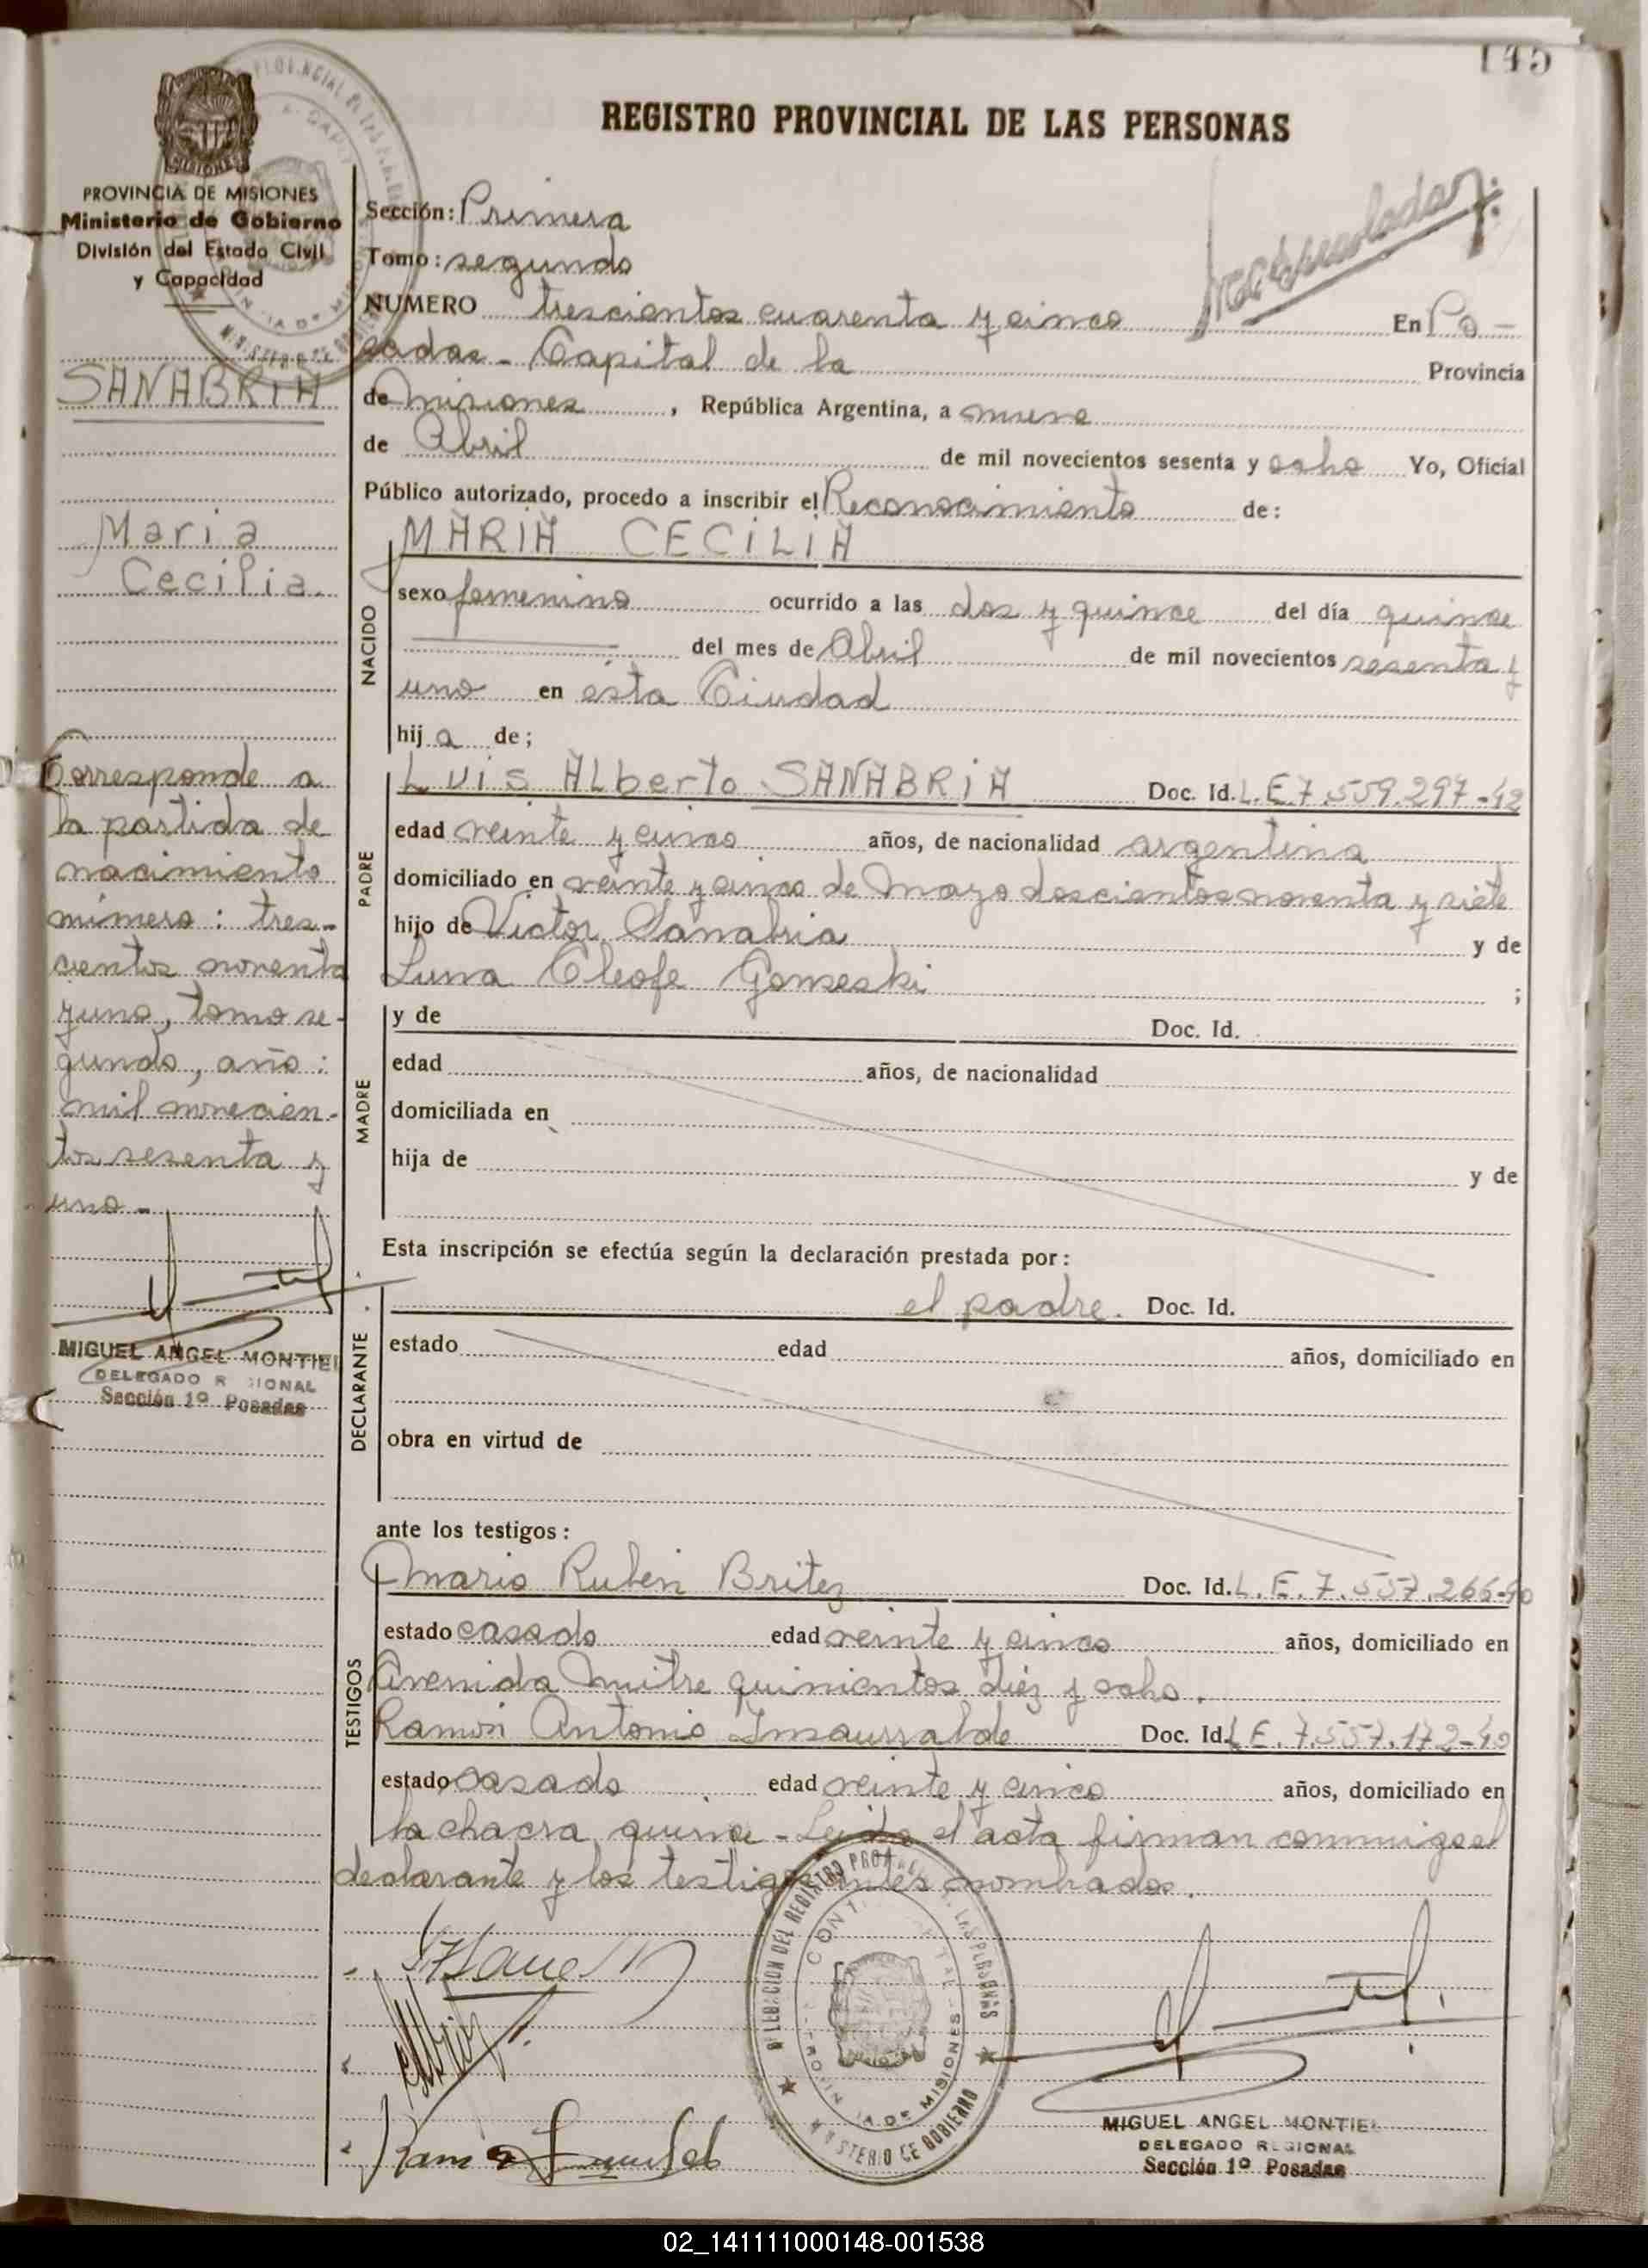 145
REGISTRO PROVINCIAL DE LAS PERSONAS
PROVINCIA DE MISIONES
Ministerio de Gobierno
División del Estado Civil
y Capacidad
SANABRIA
Maria
Cecilia.
Corresponde a
la partida de
nacimiento
número: tres-
cientos noventa
y uno, tomo se-
gundo, año:
mil novecien-
tos sesenta y
uno -
MIGUEL ANGEL MONTIEL
DELEGADO REGIONAL
Sección 1º Posadas
Sección: Primera
Tomo: segundo
NUMERO trescientos cuarenta y cinco En Po-
sadas - Capital de la Provincia
de Misiones, República Argentina, a nueve
de Abril de mil novecientos sesenta y ocho Yo, Oficial
Público autorizado, procedo a inscribir el Reconocimiento de:
NACIDO
MARIA CECILIA
sexo femenino ocurrido a las dos y quince del día quince
del mes de Abril de mil novecientos sesenta y
uno en esta Ciudad
hij a de;
PADRE
Luis Alberto SANABRIA Doc. Id. L.E 7.559.297-42
edad veinte y cinco años, de nacionalidad argentina
domiciliado en veinte y cinco de Mayo doscientos noventa y siete
hijo de Victor Sanabria y de
Luna Cleofe Gomeski ;
MADRE
y de Doc. Id.
edad años, de nacionalidad
domiciliada en
hija de y de
Esta inscripción se efectúa según la declaración prestada por:
DECLARANTE
el padre. Doc. Id.
estado edad años, domiciliado en
obra en virtud de
ante los testigos:
TESTIGOS
Mario Ruben Britez Doc. Id. L.E.7.557.266-40
estado casado edad veinte y cinco años, domiciliado en
Avenida Mitre quinientos diez y ocho.
Ramon Antonio Insaurralde Doc. Id. L.E.7.557.172-40
estado casado edad veinte y cinco años, domiciliado en
la chacra quince - Leida el acta firman conmigo el
declarante y los testigos antes nombrados.
MINISTERIO DE GOBIERNO
MIGUEL ANGEL MONTIEL
DELEGADO REGIONAL
Sección 1º Posadas
02_141111000148-001538